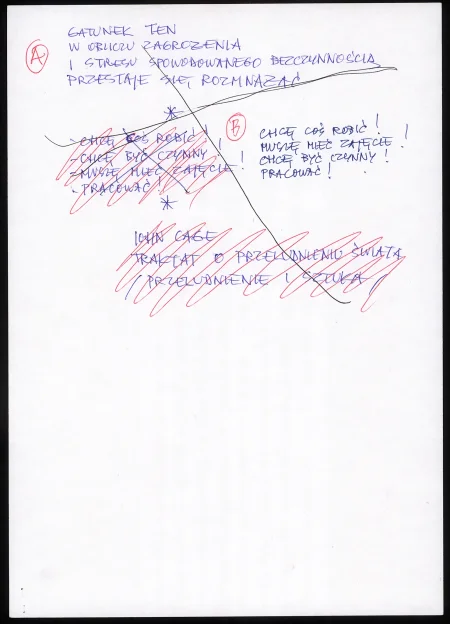 A
GATUNEK TEN
W OBLICZU ZAGROŻENIA
I STRESU SPOWODOWANEGO BEZCZYNNOŚCIĄ
PRZESTAJE SIĘ ROZMNAŻAĆ
*
- CHCĘ COŚ ROBIĆ!
- CHCĘ BYĆ CZYNNY!
- MUSZĘ MIEĆ ZAJĘCIE!
- PRACOWAĆ!
*
B
CHCĘ COŚ ROBIĆ!
MUSZĘ MIEĆ ZAJĘCIE!
CHCĘ BYĆ CZYNNY!
PRACOWAĆ!
JOHN CAGE
TRAKTAT O PRZELUDNIENIU ŚWIATA
/PRZELUDNIENIE I SZTUKA/